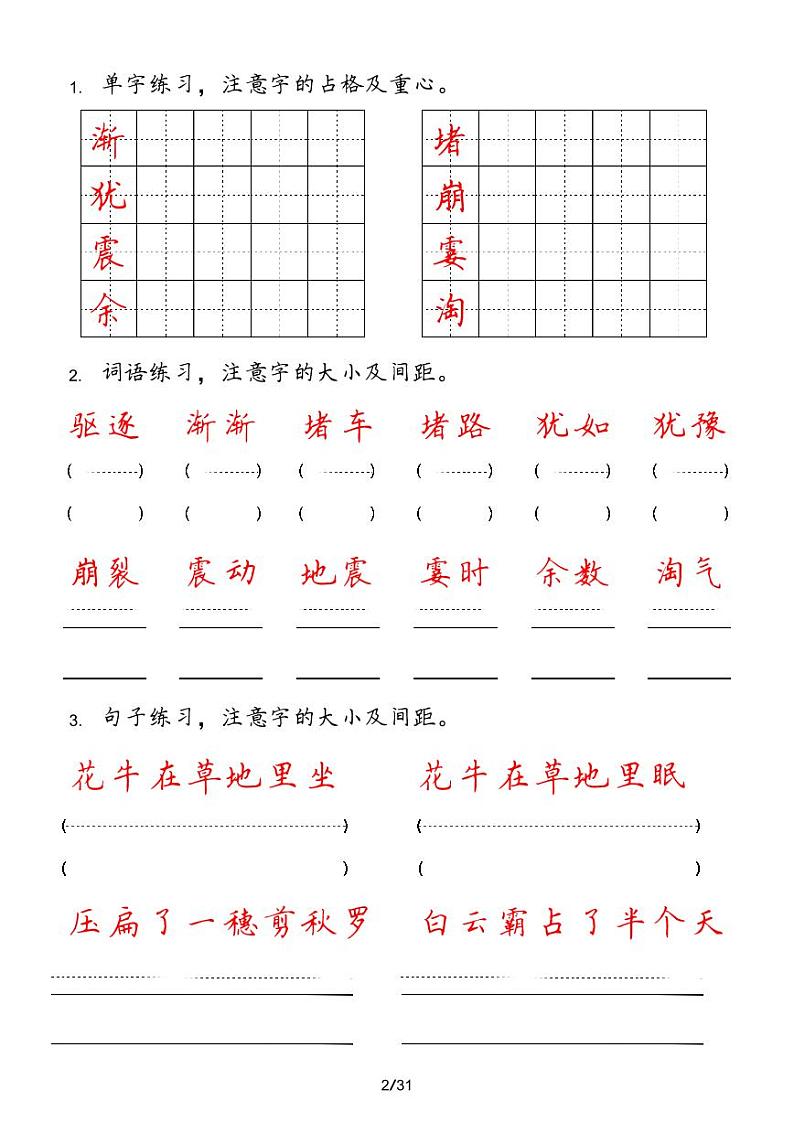 1. 单字练习，注意字的占格及重心。
渐 堵
犹 崩
震 霎
余 淘
2. 词语练习，注意字的大小及间距。
驱逐 渐渐 堵车 堵路 犹如 犹豫
( ) ( ) ( ) ( ) ( ) ( )
( ) ( ) ( ) ( ) ( ) ( )
崩裂 震动 地震 霎时 余数 淘气
3. 句子练习，注意字的大小及间距。
花牛在草地里坐 花牛在草地里眠
( ) ( )
( ) ( )
压扁了一穗剪秋罗 白云霸占了半个天
2/31